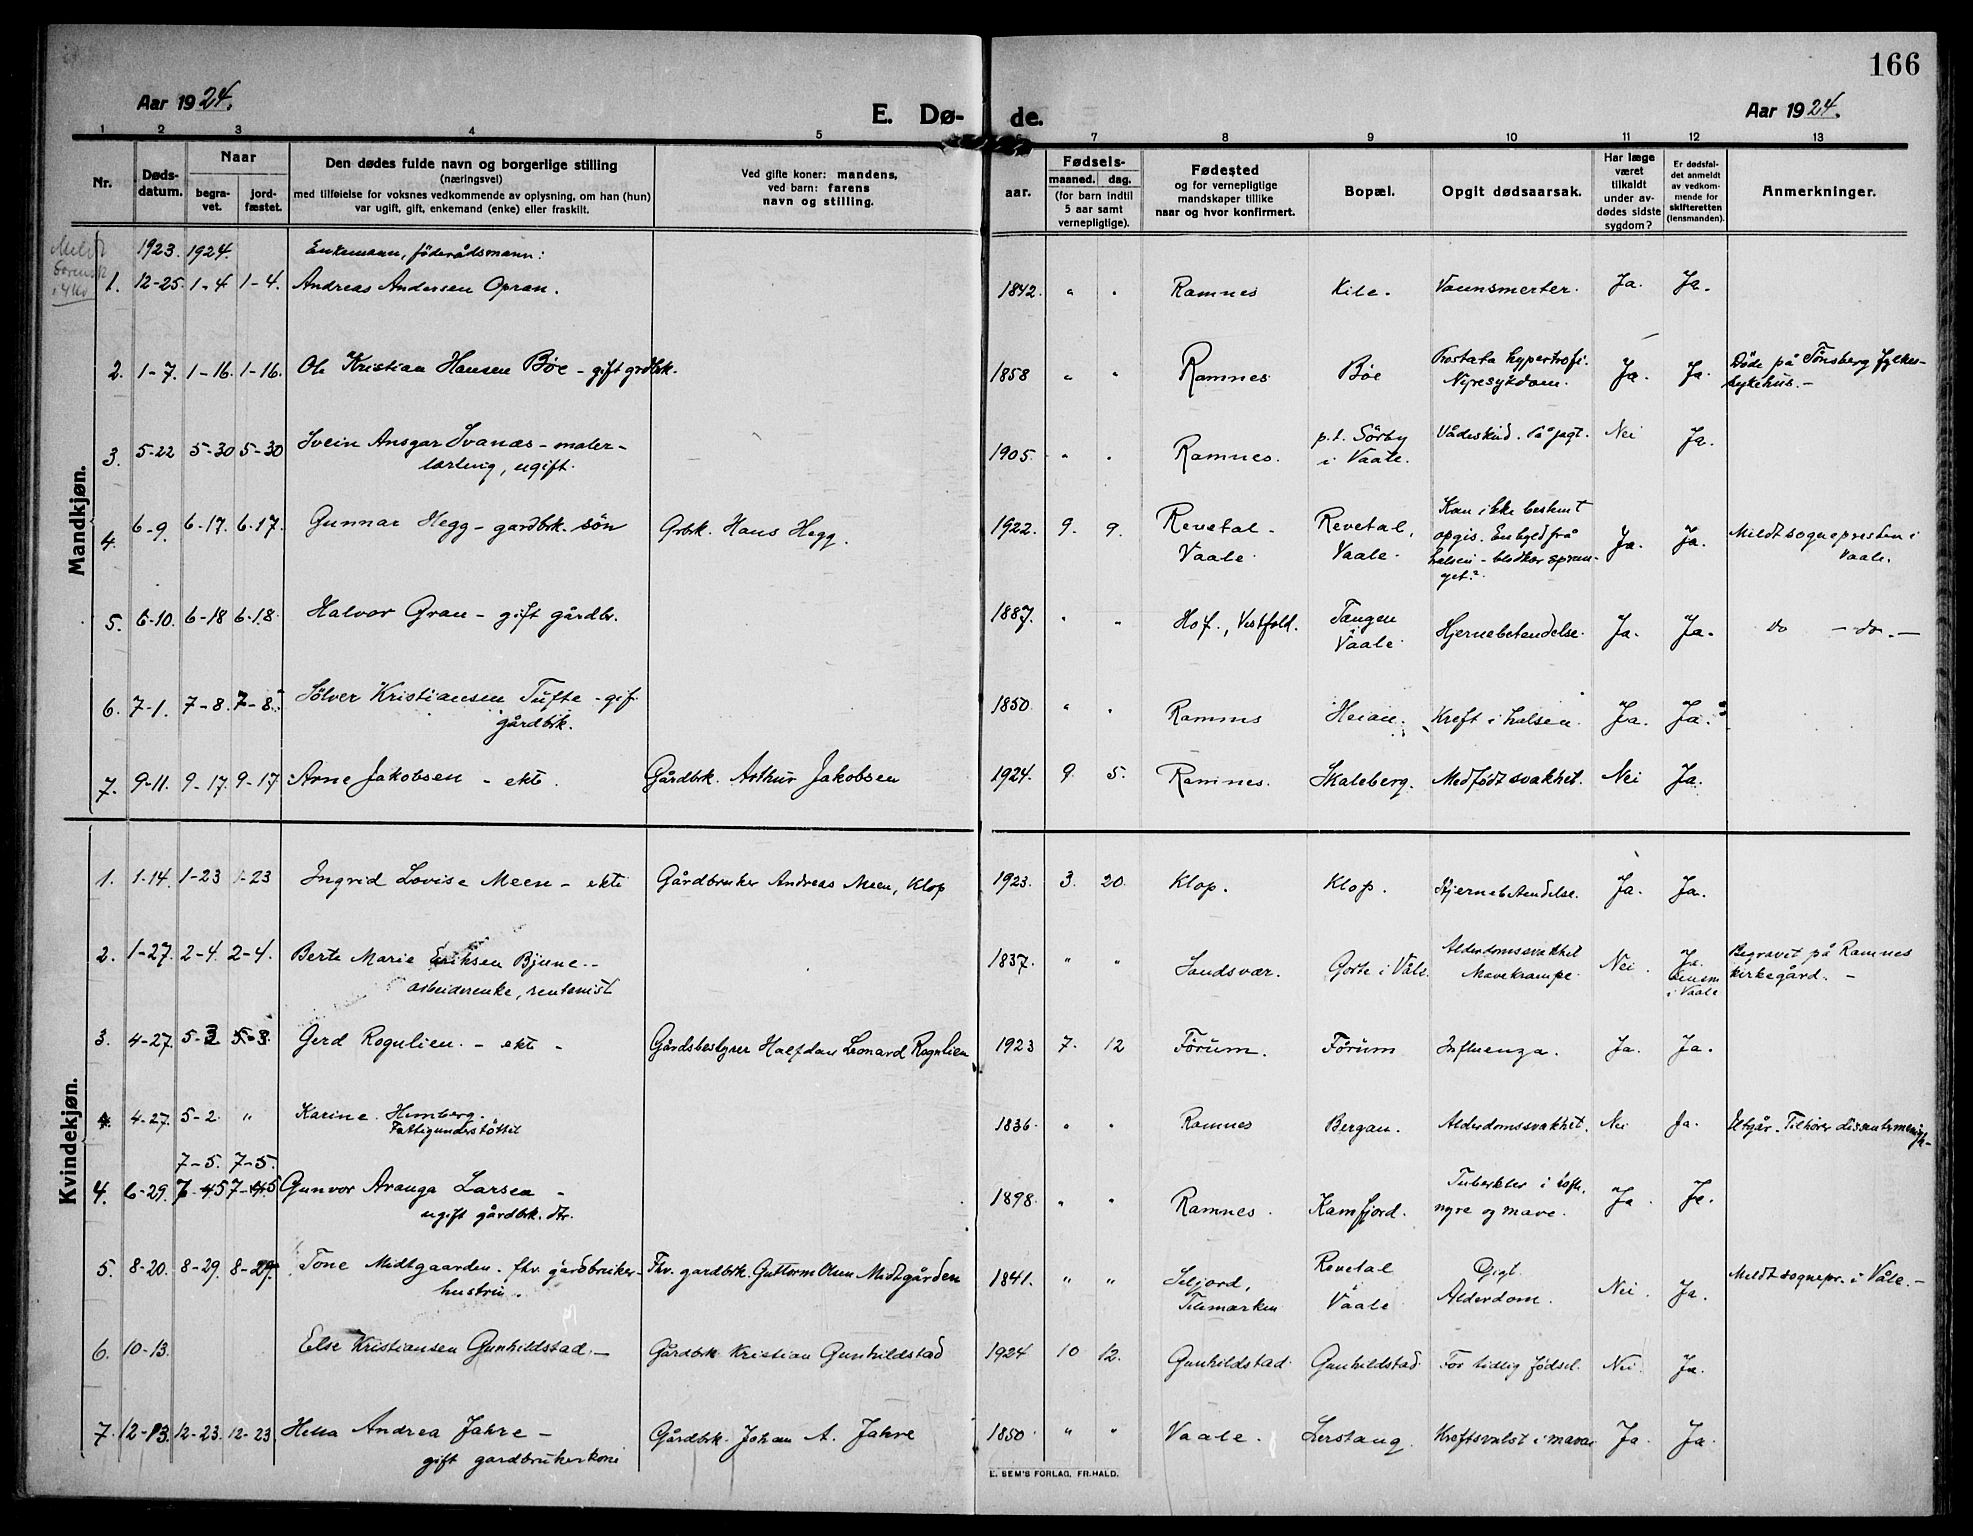 166
Aar 1924.
E. Dø-
de.
Aar 1924.
1 2 3 4 5 7 8 9 10 11 12 13
Nr.
Døds-
datum.
Naar
begra-
vet.
jord-
fæstet.
Den dødes fulde navn og borgerlige stilling
(næringsvei)
med tilføielse for voksnes vedkommende av oplysning, om han (hun)
var ugift, gift, enkemand (enke) eller fraskilt.
Ved gifte koner: mandens,
ved barn: farens
navn og stilling.
aar.
Fødsels-
maaned. dag.
(for barn indtil
5 aar samt
vernepligtige).
Fødested
og for vernepligtige
mandskaper tillike
naar og hvor konfirmert.
Bopæl.
Opgit dødsaarsak.
Har læge
været
tilkaldt
under av-
dødes sidste
sygdom?
Er dødsfal-
det anmeldt
av vedkom-
mende for
skifteretten
(lensmanden).
Anmerkninger.
Mandkjøn.
1923. 1924. Enkemann, föderådsmann:
1. 12-25. 1-4 1-4. Andreas Andersen Opran. 1842. " " Ramnes Kile. Vannsmerter. Ja. Ja.
2. 1-7. 1-16. 1-16. Ole Kristian Hansen Böe - gift grdbk. 1858 " " Ramnes Böe Prostata hypertrofi. Ja. Ja. Döde på Tönsberg fylkes-
Nyresykdom. sykehus. -
3. 5-22 5-30 5-30 Svein Ansgar Svanæs - maler- 1905. " " Ramnes. p.t. Sörby Vådeskud. På jagt. Nei Ja.
lærling, ugift. i Vaale.
4. 6-9. 6-17. 6-17. Gunnar Hegg - gardbrk. sön Grbk. Hans Hegg. 1922. 9. 9. Revetal - Revetal, Kan ikke bestemt Ja. Ja. Meldt sognepresten i
Vaale Vaale. opgis. En byld frå Vaale.
halsen - blodkar sprun-
get?
5. 6-10. 6-18 6-18. Halvor Gran - gift gårdbr. 1887. " " Hof, Vestfold. Tangen Hjernebetendelse. Ja. Ja. do - do. -
Vaale.
6. 7-1. 7-8. 7-8. Sölver Kristiansen Tufte - gif. 1850. " " Ramnes Heian. Kreft i halsen. Ja. Ja.
gårdbk.
7. 9-11. 9-17. 9-17 Arne Jakobsen - ekte. Gårdbk. Arthur Jakobsen 1924. 9. 5. Ramnes. Skaleberg. Medfödt svakhet. Nei Ja.
Kvindekjøn.
1. 1-14. 1-23 1-23 Ingrid Lovise Meen - ekte Gårdbruker Andreas Meen, Klop 1923. 3. 20. Klop. Klop. Hjernebetendelse. Ja. Ja.
2. 1-27. 2-4. 2-4. Berte Marie Eriksen Bjune - 1837. " " Sandsvær. Gorte i Våle. Alderdomssvakhet Nei. Ja. Begravet på Ramnes
arbeiderenke, rentenist Mavekrampe. i Vaale kirkegård. -
3. 4-27. 5-3 5-3. Gerd Rogulien. - ekte - Gårdsbestyrer Halfdan Leonard Rogulien 1923 7. 12 Förum. Förum Influenza. Ja. Ja.
4. 4-27. 5-2. " Karine Himberg. 1836. " " Ramnes Bergan. Alderdomssvakhet. Nei Ja. Utgår. Tilhörer dissentermenigh-
Fattigunderstöttet
7-5. 7-5.
4. 6-29. 7-45 7-45 Gunvor Aranga Larsen - 1898. " " Ramnes. Kamfjord. Tuberkler i Ja. Ja.
ugift gårdbrk. dtr. nyre og mave.
5. 8-20. 8-29. 8-29. Tone Midtgaarden. fhv. gårdbruker- Fhv. gardbrk. Guttorm Olsen Midtgården 1841. " " Seljord, Revetal Gigt. Nei. Ja. Meldt sognepr. i Våle. -
hustru. Telemarken Vaale Alderdom.
6. 10-13. Else Kristiansen Gunhildstad. - Gårdbrk. Kristian Gunhildstad 1924 10 12. Gunhildstad Gunhildstad For tidlig födsel. Nei. Ja.
7. 12-13. 12-23. 12-23. Helea Andrea Jahre - Gårdbrk. Johan A. Jahre 1850. " " Vaale. Lerstang. Kreftsvulst i maven Ja. Ja.
gift gardbrukerkone
E. SEM'S FORLAG, FR.HALD.